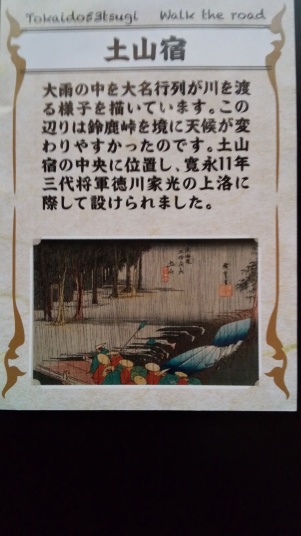 Tokaido53tsugi Walk the road
土山宿
大雨の中を大名行列が川を渡
る様子を描いています。この
辺りは鈴鹿峠を境に天候が変
わりやすかったのです。土山
宿の中央に位置し、寛永11年
三代将軍徳川家光の上洛に
際して設けられました。